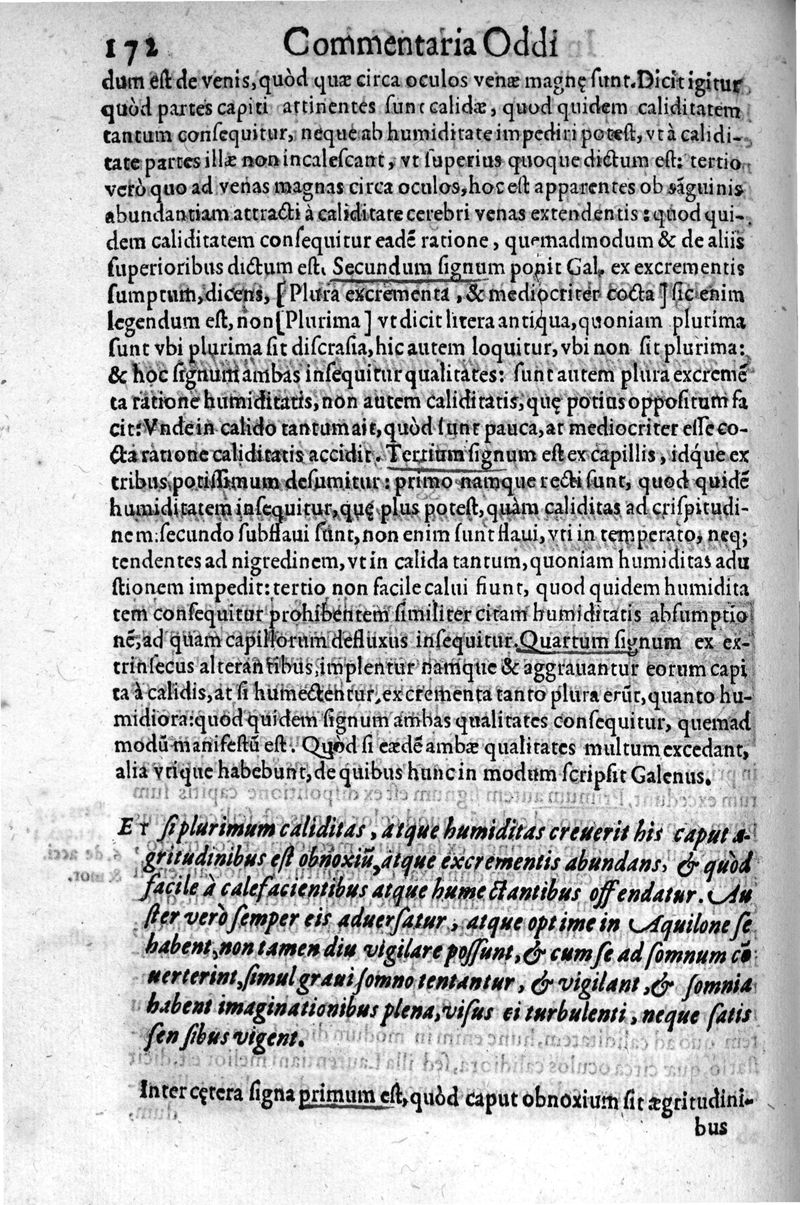 172 Commentaria Oddi
dum eſt de venis, quòd quæ circa oculos venæ magnę ſunt. Dicit igitur
quòd partes capiti attinentes ſunt calidæ, quod quidem caliditatem
tantum conſequitur, neque ab humiditate impediri poteſt, vt à calidi-
tate partes illæ non incaleſcant, vt ſuperius quoque dictum eſt: tertio
verò quo ad venas magnas circa oculos, hoc eſt apparentes ob sãguinis
abundantiam attracti à caliditate cerebri venas extendentis: quod qui-
dem caliditatem conſequitur eadẽ ratione, quemadmodum & de aliis
ſuperioribus dictum eſt. Secundum ſignum ponit Gal. ex excrementis
ſumptum, dicens, [Plura excrementa, & mediocriter cocta] ſic enim
legendum eſt, non [Plurima] vt dicit litera antiqua, quoniam plurima
ſunt vbi plurima ſit diſcraſia, hic autem loquitur, vbi non ſit plurima:
& hoc ſignum ambas inſequitur qualitates: ſunt autem plura excremẽ
ta ratione humiditatis, non autem caliditatis, quę potius oppoſitum fa
cit: Vnde in calido tantum ait, quòd ſunt pauca, at mediocriter eſſe co-
cta ratione caliditatis accidit. Tertium ſignum eſt ex capillis, idq́ue ex
tribus potiſſimum deſumitur: primo namque recti ſunt, quod quidẽ
humiditatem inſequitur, quę plus poteſt, quàm caliditas ad criſpitudi-
nem: ſecundo ſubflaui ſunt, non enim ſunt flaui, vti in temperato, neq;
tendentes ad nigredinem, vt in calida tantum, quoniam humiditas adu
ſtionem impedit: tertio non facile calui fiunt, quod quidem humidita
tem conſequitur prohibentem ſimiliter citam humiditatis abſumptio
nẽ, ad quam capillorum defluxus inſequitur. Quartum ſignum ex ex-
trinſecus alterantibus, implentur namque & aggrauantur eorum capi
ta à calidis, at ſi humectentur, excrementa tanto plura erũt, quanto hu-
midiora: quod quidem ſignum ambas qualitates conſequitur, quemad
modũ manifeſtũ eſt. Quòd ſi eædẽ ambæ qualitates multum excedant,
alia vtique habebunt, de quibus hunc in modum ſcripſit Galenus.
Et ſi plurimum caliditas, atque humiditas creuerit his caput æ-
gritudinibus eſt obnoxiũ, atque excrementis abundans, & quòd
facile à calefacientibus atque humectantibus offendatur. Au
ſter verò ſemper eis aduerſatur, atque optime in Aquilone ſe
habent, non tamen diu vigilare poſſunt, & cum ſe ad ſomnum cõ
uerterint, ſimul graui ſomno tentantur, & vigilant, & ſomnia
habent imaginationibus plena, viſus ei turbulenti, neque ſatis
ſenſibus vigent.
Inter cętera ſigna primum eſt, quòd caput obnoxium ſit ægritudini-
bus